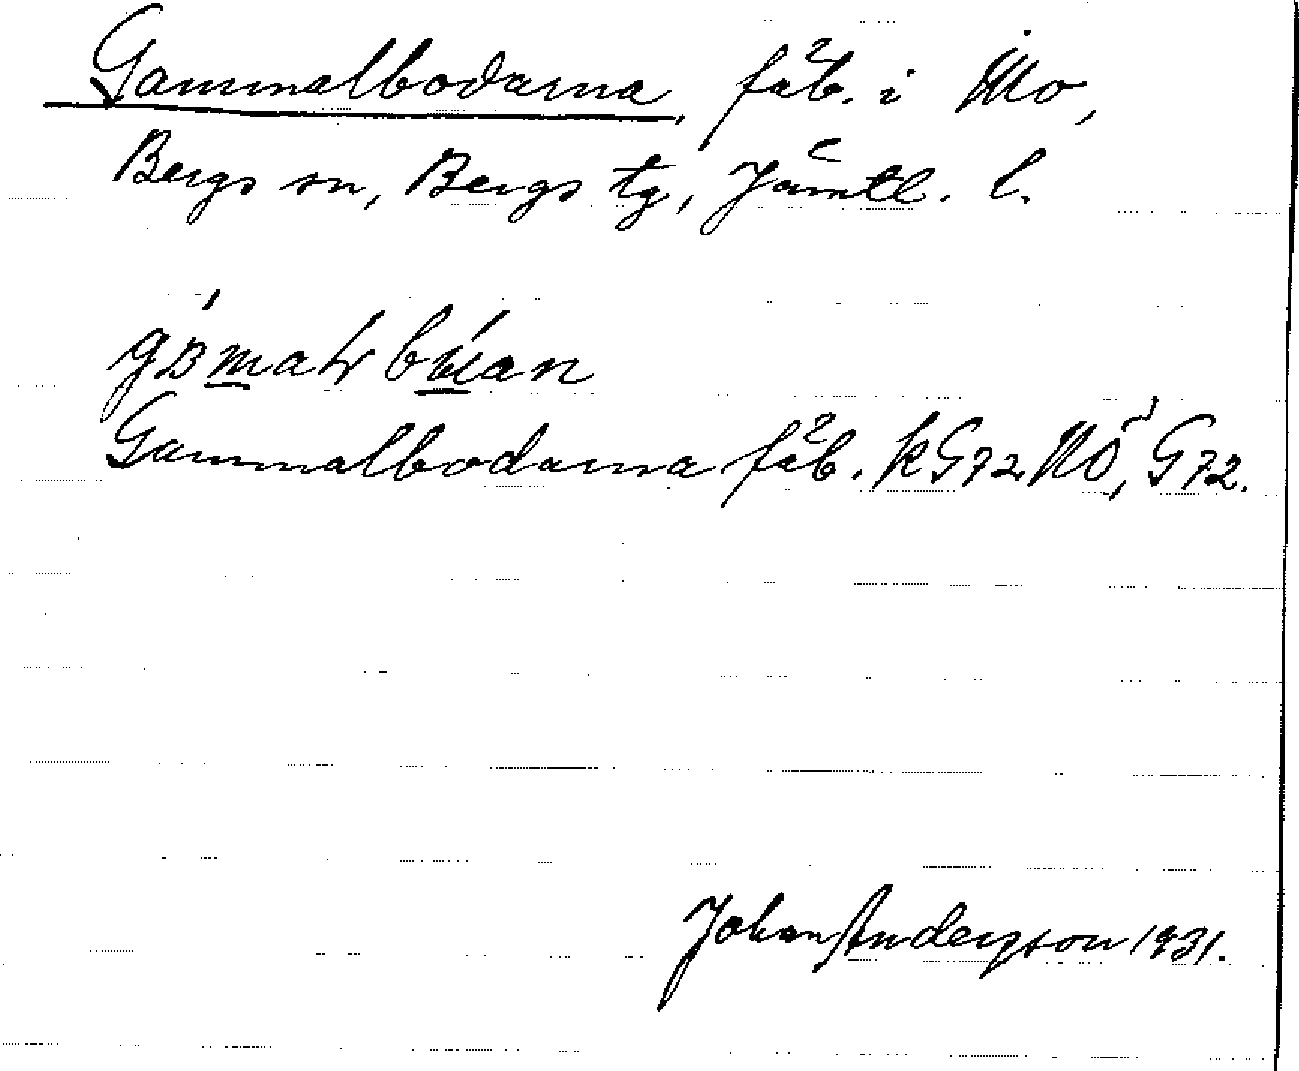 Gammalbodarna, fäb. i Mo,
Bergs sn, Bergs tg, Jämtl. l.
Gammalbodarna fäb. kG72 NÖ, G72.
Johan Anderson 1931.